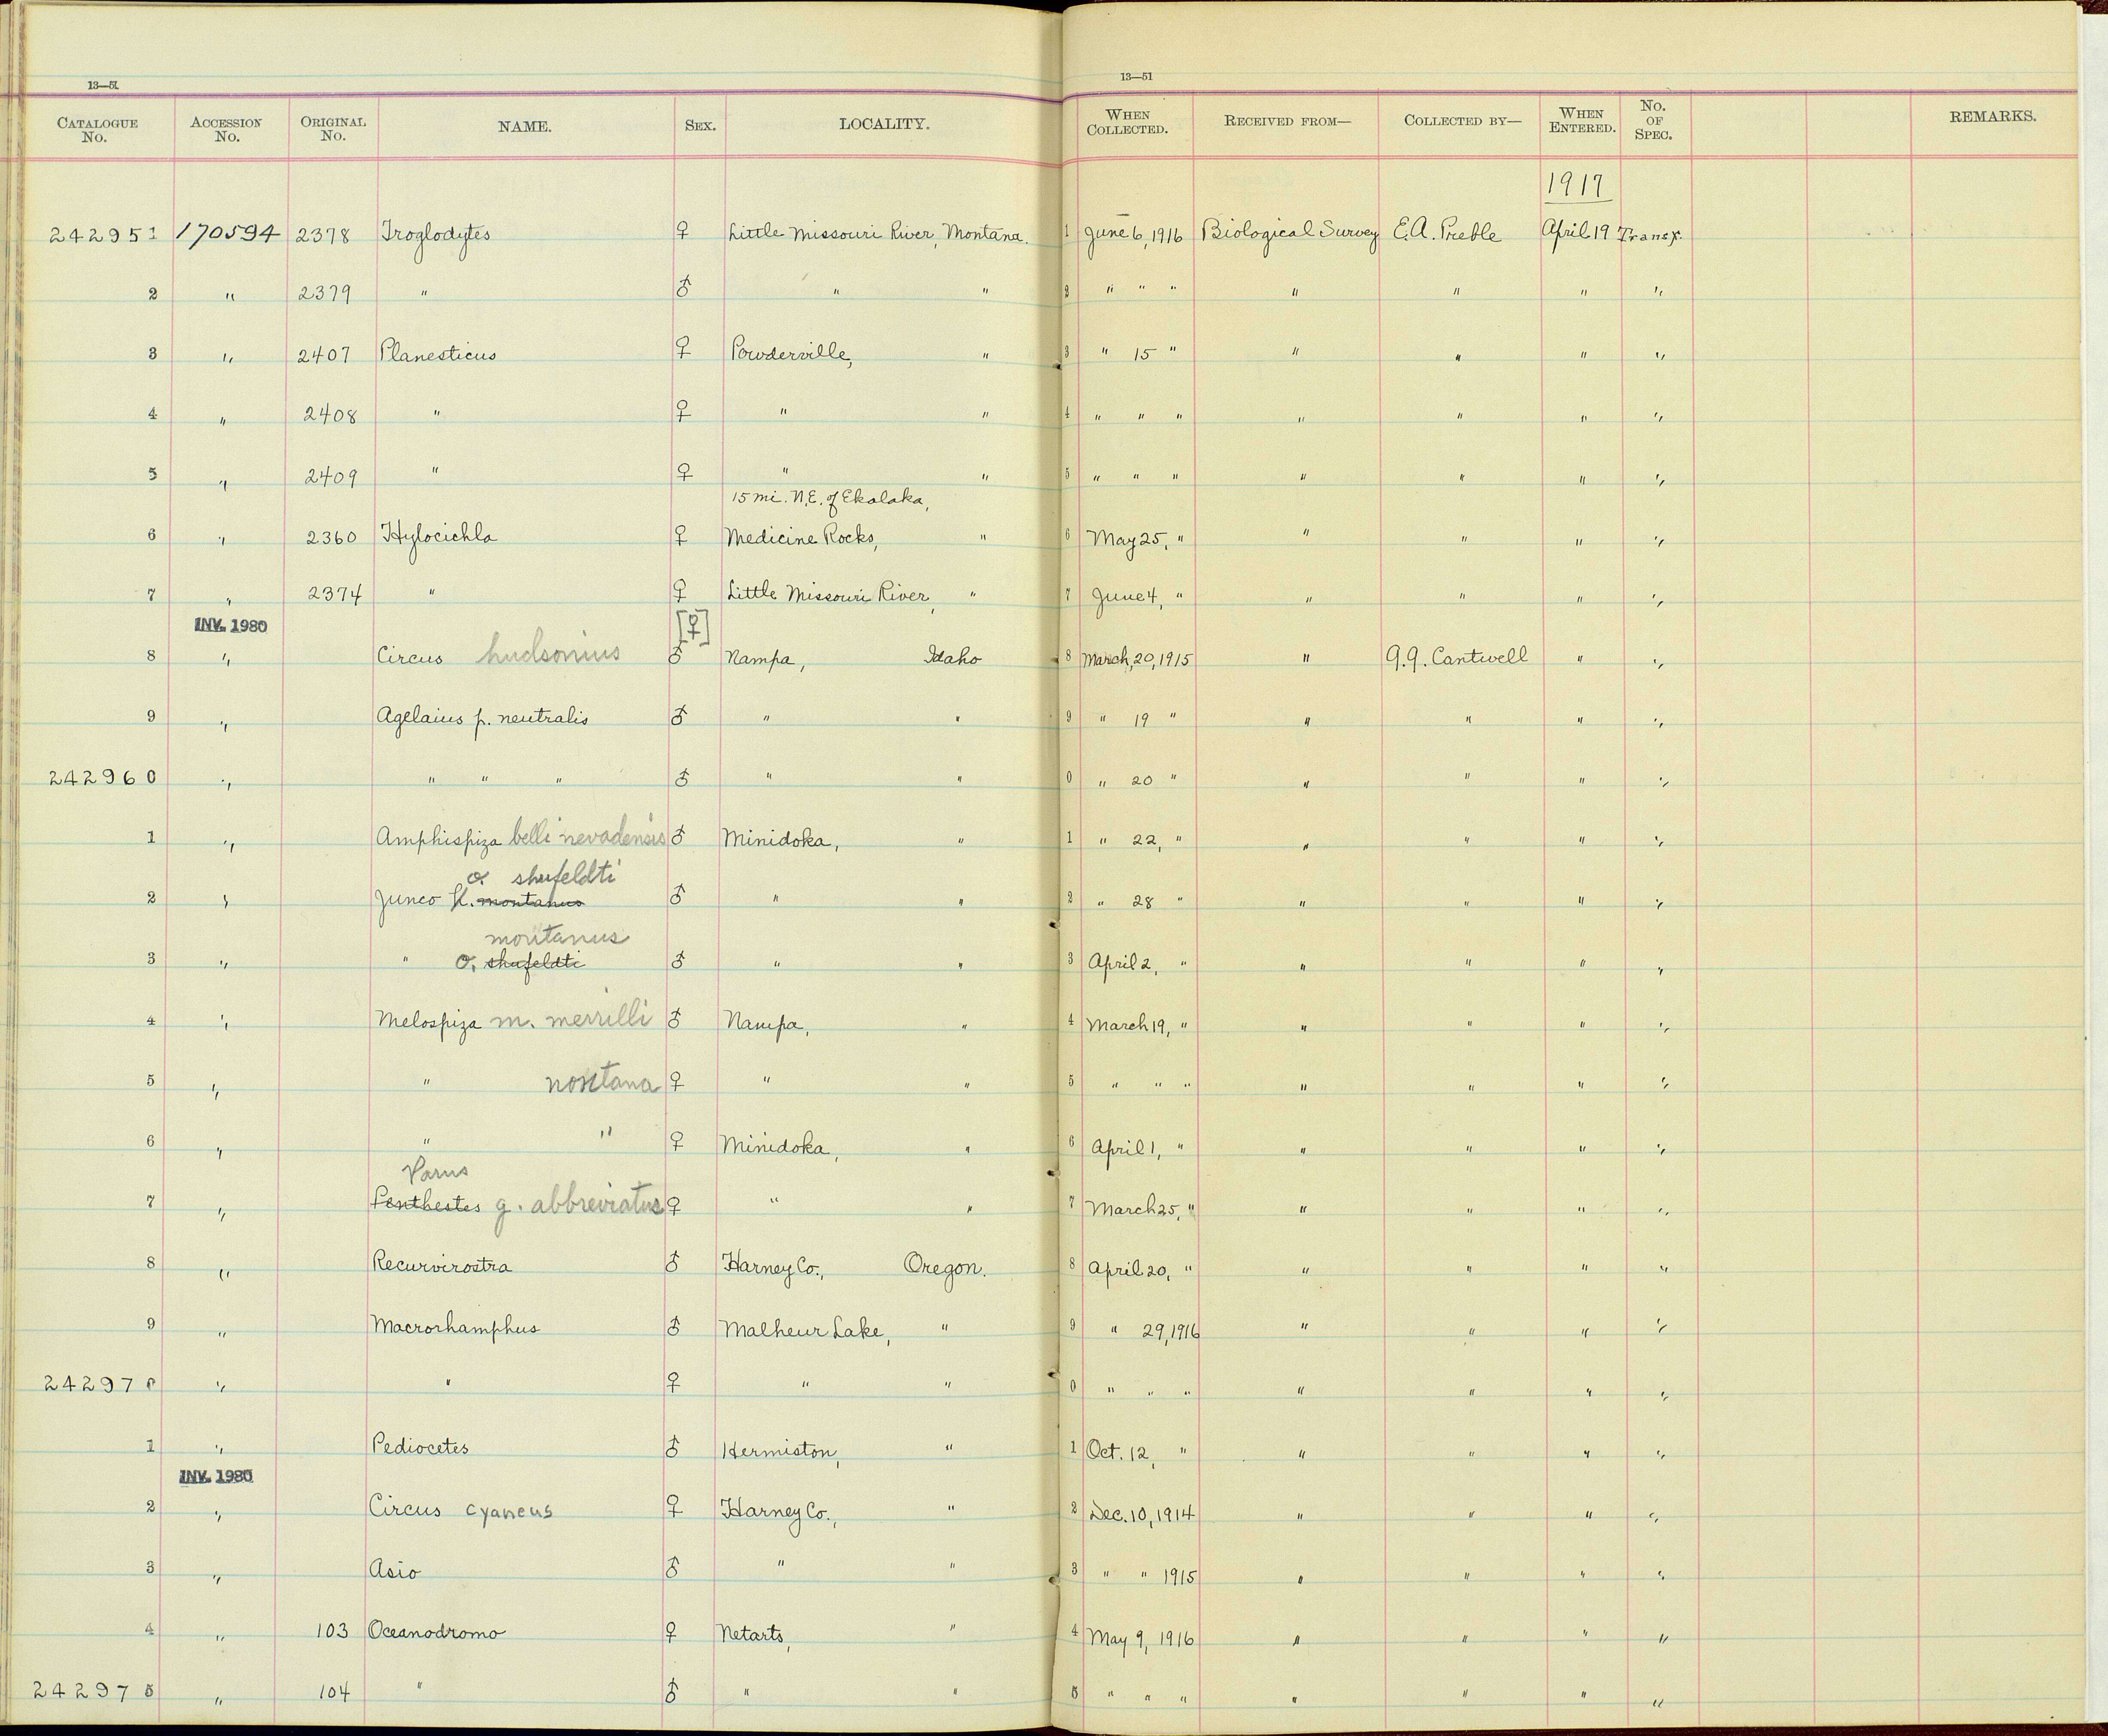 13—51 13—51
CATALOGUE No. ACCESSION No. ORIGINAL No. NAME. SEX. LOCALITY. WHEN COLLECTED. RECEIVED FROM— COLLECTED BY— WHEN ENTERED. No. OF SPEC. REMARKS.
1917
242951 170594 2378 Troglodytes ♀ Little Missouri River, Montana. 1 June 6, 1916 Biological Survey E.A. Preble April 19 Transf.
2 " 2379 " ♂ " " 2 " " " " " " "
3 " 2407 Planesticus ♀ Powderville, " 3 " 15 " " " " "
4 " 2408 " ♀ " " 4 " " " " " " "
5 " 2409 " ♀ " " 5 " " " " " " "
15 mi. N.E. of Ekalaka,
6 " 2360 Hylocichla ♀ Medicine Rocks, " 6 May 25, " " " " "
7 " 2374 " ♀ Little Missouri River, " 7 June 4, " " " " "
INV. 1980 [♀]
8 " Circus hudsonius ♂ Nampa, Idaho 8 March, 20, 1915 " G.G. Cantwell " "
9 " Agelaius p. neutralis ♂ " " 9 " 19 " " " " "
242960 " " " " ♂ " " 0 " 20 " " " " "
1 " Amphispiza belli nevadensis ♂ Minidoka, " 1 " 22, " " " " "
o. shufeldti
2 " Junco h. montanus ♂ " " 2 " 28 " " " " "
montanus
3 " " o. shufeldti ♂ " " 3 April 2, " " " " "
4 " Melospiza m. merrilli ♂ Nampa, " 4 March 19, " " " " "
5 " " montana ♀ " " 5 " " " " " " "
6 " " " ♀ Minidoka, " 6 April 1, " " " " "
Parus
7 " Penthestes g. abbreviatus ♀ " " 7 March 25, " " " " "
8 " Recurvirostra ♂ Harney Co., Oregon. 8 April 20, " " " " "
9 " Macrorhamphus ♂ Malheur Lake, " 9 " 29, 1916 " " " "
242970 " " ♀ " " 0 " " " " " " "
1 " Pediocetes ♂ Hermiston, " 1 Oct. 12, " " " " "
INV. 1980
2 " Circus cyaneus ♀ Harney Co., " 2 Dec. 10, 1914 " " " "
3 " Asio ♂ " " 3 " " 1915 " " " "
4 " 103 Oceanodromo ♀ Netarts, " 4 May 9, 1916 " " " "
242975 " 104 " ♂ " " 5 " " " " " " "